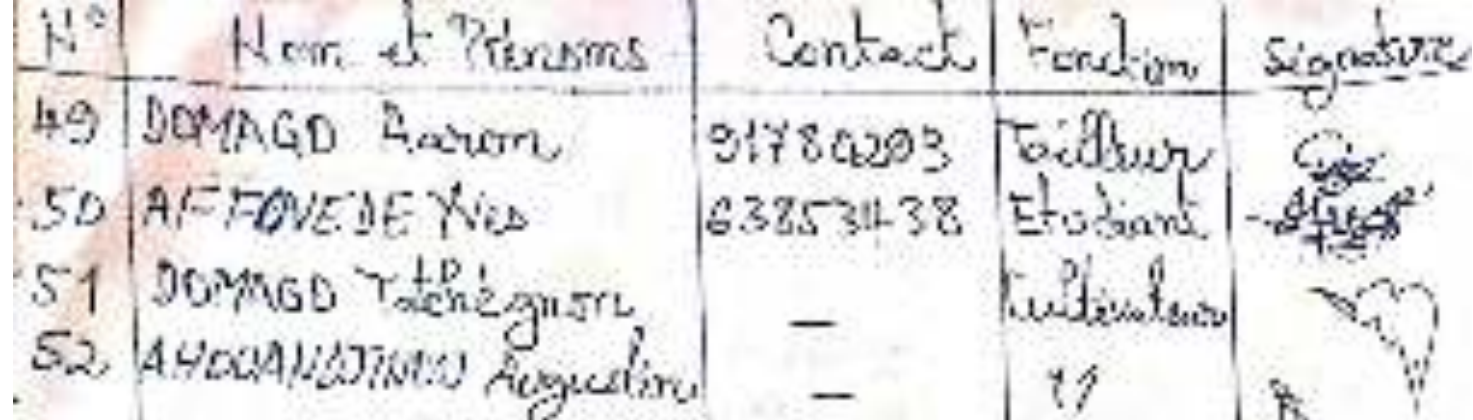 N° Nom et Prénoms Contact Fonction Signature
49 DOMAGO Aaron 91780203 Tailleur
50 AFFOVEDE Yves 63853438 Etudiant
51 DOMAGO Tatchégnon — Cultivateur
52 Augustin — 11